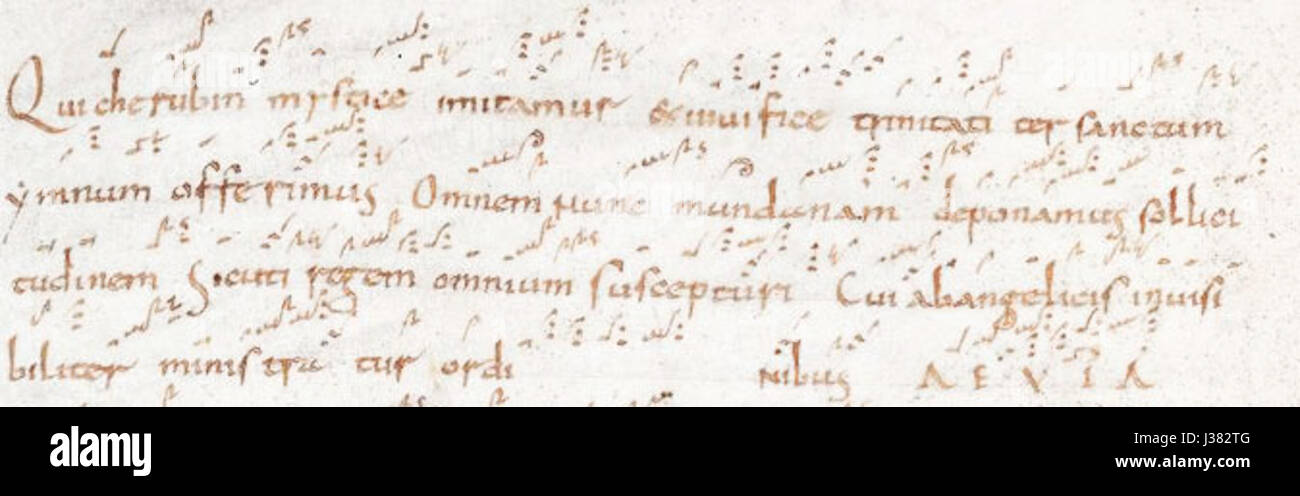 Qui cherubin mystice imitamur & vivifice trinitati ter sanctum
ymnum offerimus Omnem nunc mundanam deponamus sollici
tudinem Sicuti regem omnium suscepturi Cui ab angelicis invisi
biliter ministratur ordi nibus A E V I A
alamy
Image ID: J382TG
www.alamy.com